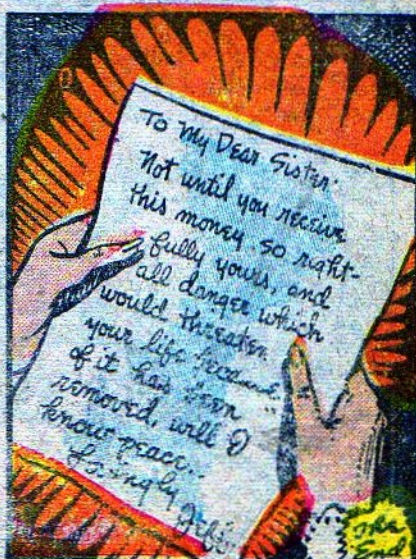 To My Dear Sister:
Not until you receive
this money, so right-
fully yours, and
all danger which
would threaten
your life because
of it has been
removed, will I
know peace..
Lovingly,
Jeff.
The
End